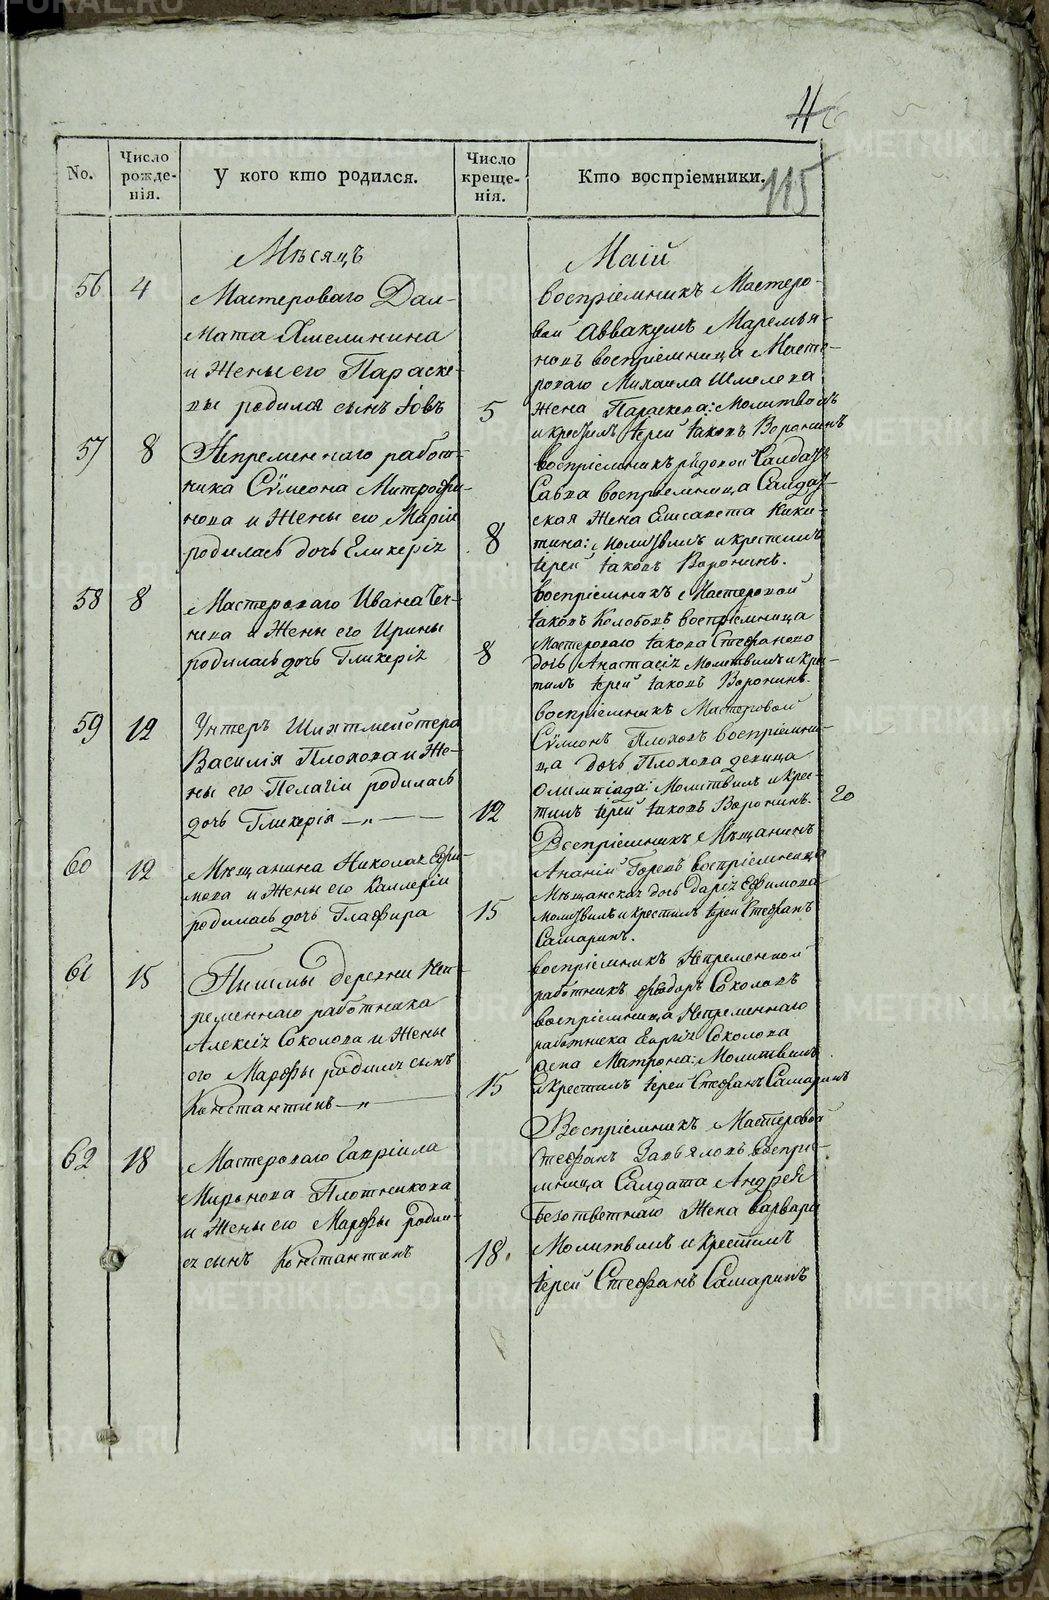 115
No.
Число рожде-нія.
У кого кто родился.
Число креще-нія.
Кто воспріемники.
Мѣсяцъ
Маій
56
4
Мастероваго Дал-
мата Хмелинина
и жены его Параске-
вы родился сынъ Іовъ
5
воспріемникъ Мастеро-
вой Аввакумъ Маремья-
новъ воспріемница Масте-
роваго Михаила Шмелева
жена Параскева: Молитвилъ
и крестилъ Іерей Іаковъ Воронинъ
57
8
Непременнаго работ-
ника Сѵмеона Митрофа-
нова и жены его Маріи
родилась дочь Гликерія
8
воспріемникъ рядовой Салдатъ
Савва воспріемница Салдат-
ская жена Елисавета Ники-
тина: молитвилъ и крестилъ
Іерей Іаковъ Воронинъ.
58
8
Мастероваго Ивана
и жены его Ирины
родилась дочь Гликерія
8
воспріемникъ Мастеровой
Іаковъ Колобовъ воспріемница
Мастероваго Іакова Стефанова
дочь Анастасія Молитвилъ и кре-
тилъ Іерей Іаковъ Воронинъ.
59
12
Унтеръ Шихтмейстера
Василія Плохова и же-
ны его Пелагіи родилась
дочь Гликерія
12
воспріемникъ Мастеровой
Сѵмеонъ Плоховъ воспріемни-
ца дочь Плохова девица
Олимпіада: Молитвилъ и крес-
тилъ Іерей Іаковъ Воронинъ.
20
60
12
Мещанина Николая Ефи-
мова и жены его Валлеріи
родилась дочь Глафира
15
Воспріемникъ Мещанинъ
Ананій воспріемница
Мещанская дочь Дарія Ефимова
молитвилъ и крестилъ Іерей Стефанъ
Самаринъ.
61
15
Пышмы деревни Неп-
ременнаго работника
Алексія Соколова и жены
его Марфы родился сынъ
Константинъ
15
воспріемникъ Непременной
работникъ Федоръ Соколовъ
воспріемница Непременнаго
работника Соколова
Матрона: Молитвилъ
и крестилъ Іерей Стефанъ Самаринъ
62
18
Мастероваго Гавріила
Миронова Плотникова
и жены его Марфы родил-
ся сынъ Константинъ
18.
Воспріемникъ Мастеровой
Стефанъ Завьяловъ воспріе-
мница Салдата Андрея
Безответнаго жена Варвара
Молитвилъ и крестилъ
Іерей Стефанъ Самаринъ
METRIKI.GASO-URAL.RU